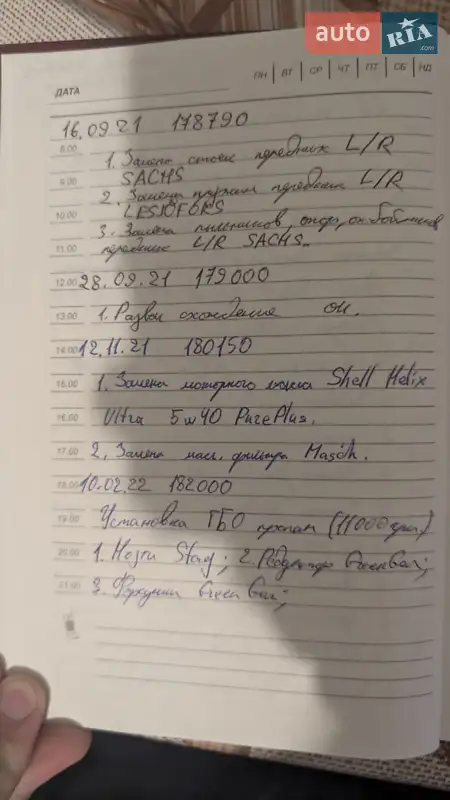 auto RIA.com
ДАТА
ПН ВТ СР ЧТ ПТ СБ НД
16.09.21 178790
8.00
1. Замена стоек передних L/R
9.00 SACHS
2. Замена пружин передних L/R
10.00 LESJÖFORS
3. Замена пыльников, опор, отбойников
11.00 передние L/R SACHS.
12.00 28.09.21 179000
13.00 1. Развал схождение ок.
14.00 12.11.21 180150
15.00 1. Замена моторного масла Shell Helix
16.00 Ultra 5w40 PurePlus.
17.00 2. Замена масл. фильтра Masöth.
18.00 10.02.22 182000
19.00 Установка ГБО пропан (11000 грн.)
20.00 1. Мозги Stag; 2. Редуктор GreenGas;
21.00 3. Форсунки Green Gas;